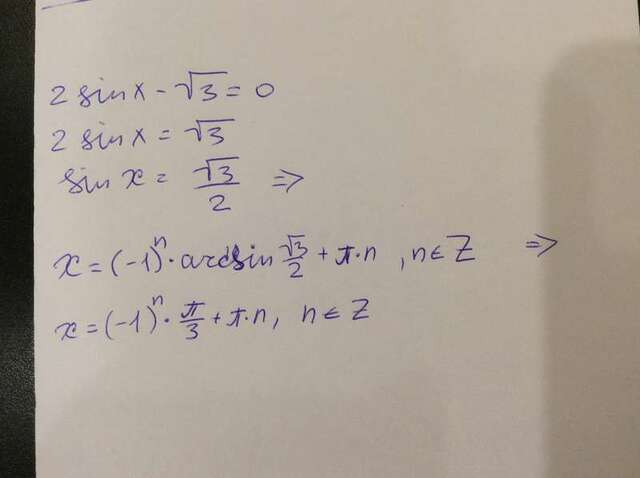 2 sin x - √3 = 0
2 sin x = √3
sin x = √3/2 ⇒
x = (-1)ⁿ · arcsin √3/2 + π · n , n ∈ Z ⇒
x = (-1)ⁿ · π/3 + π · n, n ∈ Z